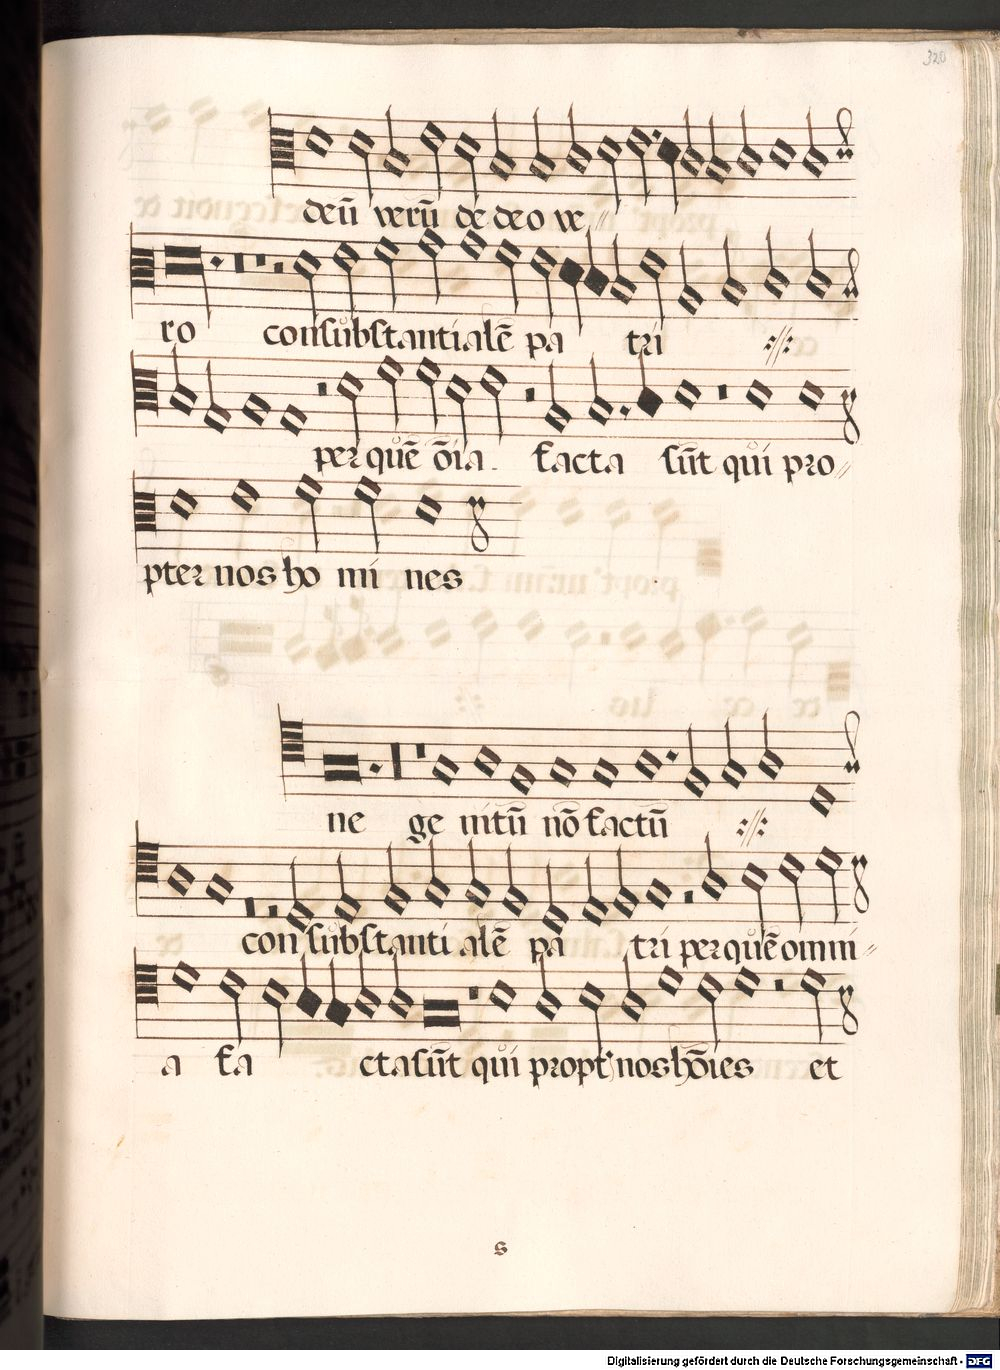 320
deū verū de deo ve〃
ro consubstantialē pa tri ://:
per quē ōia facta sūt qui pro〃
pter nos ho mi nes
ne ge nitū nō factū ://:
con substanti alē pa tri per quē omni〃
a fa cta sūt qui propt' nos hōies et
s
Digitalisierung gefördert durch die Deutsche Forschungsgemeinschaft - DFG